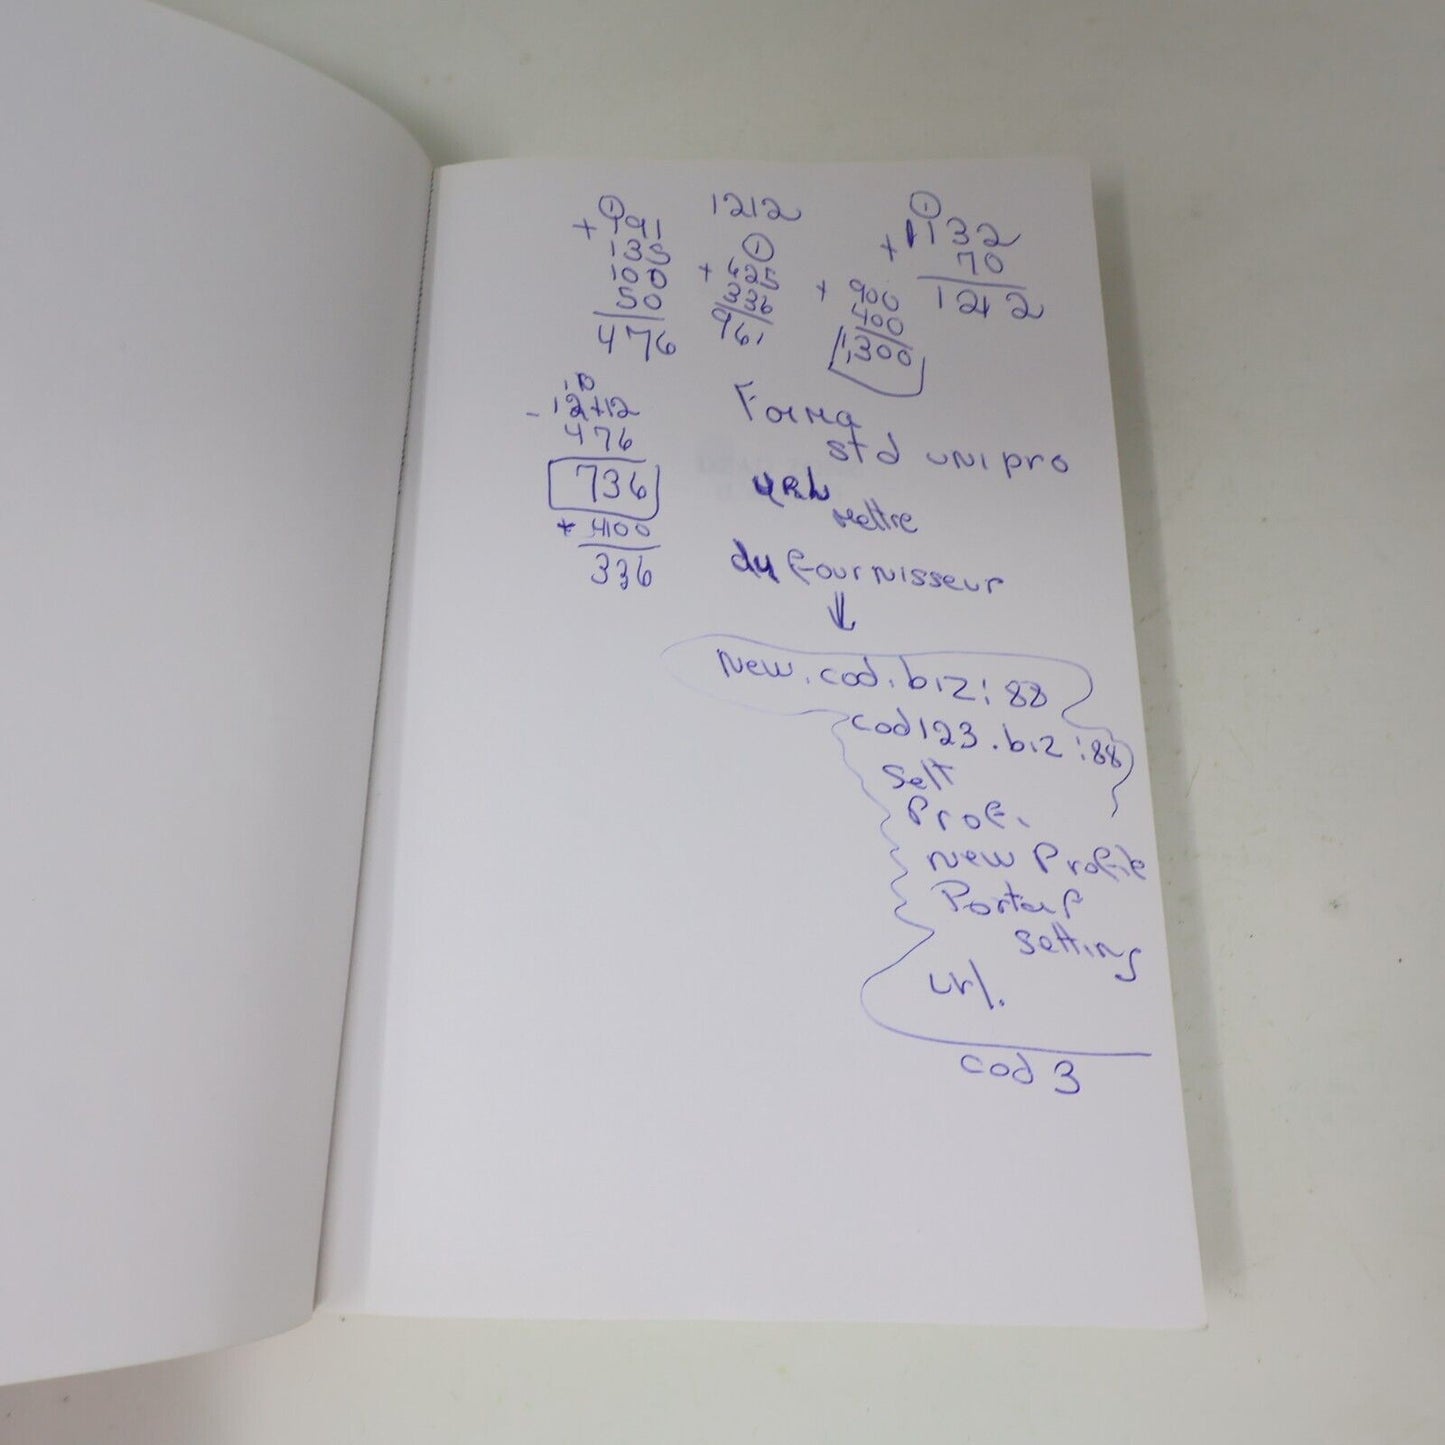 1
+ 191
135
100
50
476
1212
1
+ 625
336
961
+ 900
400
1300
1
+ 1132
70
1212
10
- 1212
476
736
400
336
Forma
std unipro
URL
mettre
du fournisseur
↓
new.cod.biz:88
cod123.biz:88
Sett
Prof.
new Profile
Portal
setting
url.
cod 3